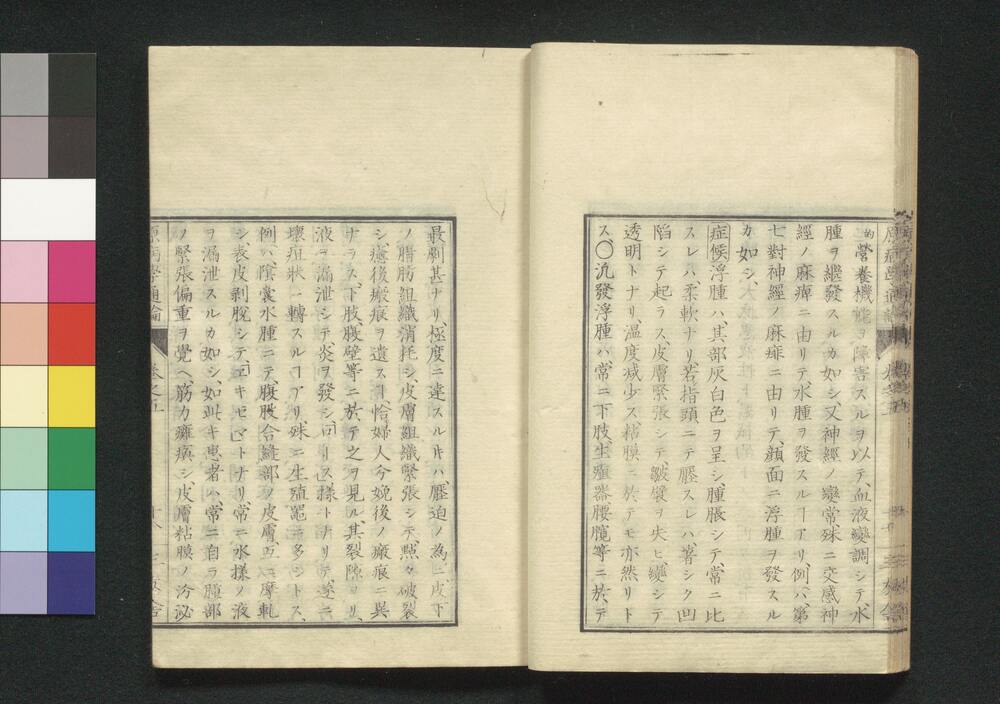 的營養機能ヲ障害スルヲ以テ、血液變調シテ水
腫ヲ繼發スルカ如シ又神經ノ變常殊ニ交感神
經ノ麻痺ニ由リテ水腫ヲ發スルヿアリ、例ハ、第
七對神經ノ麻痺ニ由リテ、顔面ニ浮腫ヲ發スル
カ如シ、
症候浮腫ハ、其部灰白色ヲ呈シ、腫脹シテ、常ニ比
スレハ柔軟ナリ、若指頭ニテ壓スレハ、著シク凹
陷シテ起ラス、皮膚緊張シテ、皺襞ヲ失ヒ、變シテ
透明トナリ、温度減少ス、粘膜ニ於テモ亦然リト
ス、〇汎發浮腫ハ、常ニ下肢生殖器腰臗等ニ於テ
最劇甚ナリ、極度ニ達スル片ハ、壓迫ノ為ニ、皮下
ノ脂肪組織消耗シ皮膚組織緊張シテ、點々破裂
シ、癒後瘢痕ヲ遺スヿ、恰婦人分娩後ノ瘢痕ニ異
ナラス、下肢腹壁等ニ於テ之ヲ見ル、其裂隙ヨリ、
液ヲ漏泄シテ、炎ヲ發シ、同リス様トナリテ、遂ニ
壞疽狀ニ轉スルヿアリ、殊ニ生殖器ニ多シトス、
例ハ、陰囊水腫ニテ、腹股合縫部ノ皮膚、互ニ摩軋
シ、表皮剥脱シテ、エキゼマトナリ、常ニ水様ノ液
ヲ漏泄スルカ如シ、如此キ患者ハ、常ニ自ラ腫部
ノ緊張偏重ヲ覺ヘ、筋力癱瘓シ、皮膚粘膜ノ分泌
原病學通論
卷之五